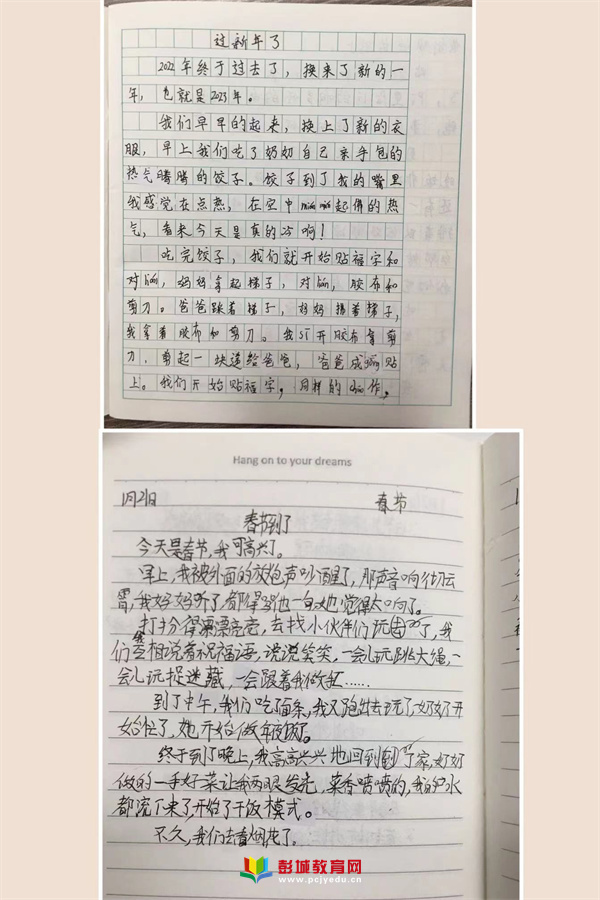 过新年了
2022年终于过去了，换来了新的一
年，也就是2023年。
我们早早的起来，换上了新的衣
服，早上我们吃了奶奶自己亲手包的
热气腾腾的饺子。饺子到了我的嘴里
我感觉在点热，在空中 起佛的热
气，看来今天是真的 啊！
吃完饺子，我们就开始贴福字和
对lián，妈妈拿起梯子，对lián，胶布和
剪刀。爸爸踩着梯子，妈妈扶着梯子，
我拿着胶布和剪刀。我sī开胶布拿剪
刀，剪起一块递给爸爸，爸爸成gōng贴
上。我们开始贴福字，同样的dòng作，
Hang on to your dreams
1月21日 春节
春节到了
今天是春节，我可高兴了。
早上，我被外面的放炮声吵醒了，那声音响彻云
霄，我妈妈听了，都 他一句 她觉得太响了。
打扮得漂漂亮亮，去找小伙伴们玩 了，我
们 互相说着祝福语，说说笑笑，一会儿玩跳大绳，一
会儿玩捉迷藏，一会跟着我们做 ……
到了中午，我们吃了面条，我又跑出去玩了，奶奶开
始忙了，她开始做年夜饭了。
终于到了晚上，我高高兴兴地回到 了家，奶奶
做的一手好菜让我两眼发光，菜香喷喷的，我的口水
都流下来了，开始了干饭模式。
不久，我们去看烟花了。
彭城教育网
www.pcjyedu.cn